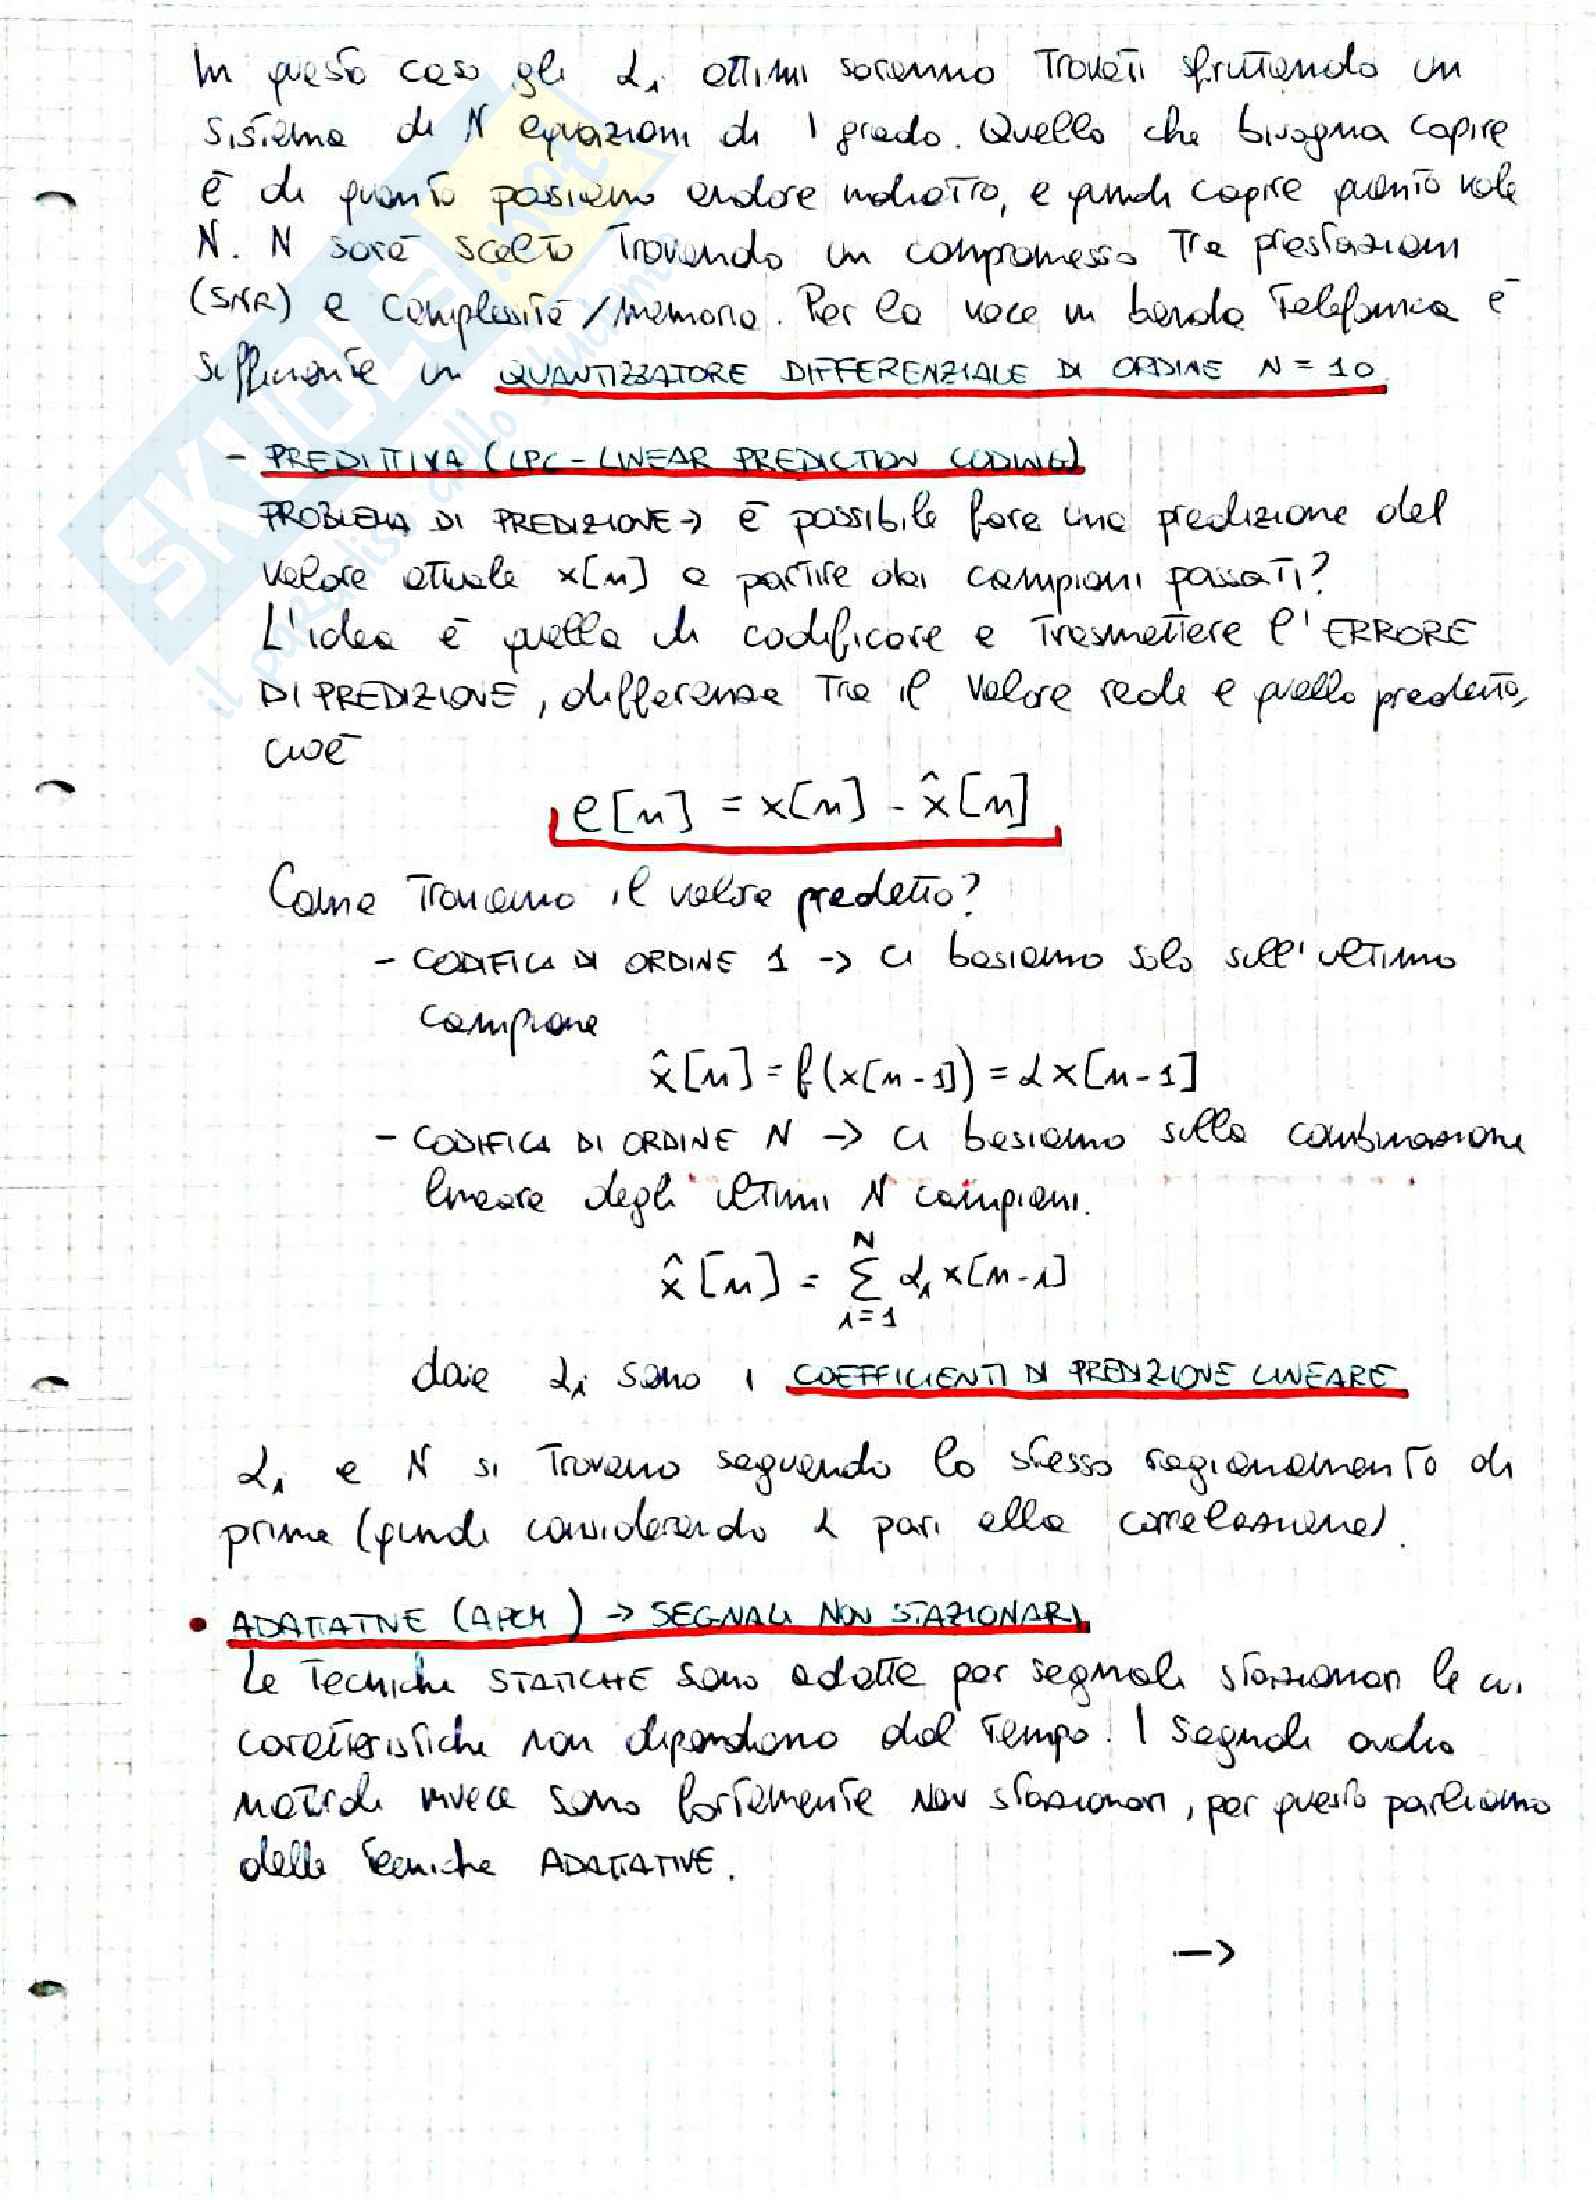 In questo caso gli αi ottimi saranno trovati sfruttando un
sistema di N equazioni di 1 grado. Quello che bisogna capire
è di quanto possiamo andare indietro, e quindi capire quanto vale
N. N sarà scelto trovando un compromesso tra prestazioni
(SNR) e complessità/memoria. Per la voce in banda telefonica è
sufficiente un QUANTIZZATORE DIFFERENZIALE DI ORDINE N = 10
- PREDITTIVA (LPC - LINEAR PREDICTION CODING)
PROBLEMA DI PREDIZIONE → è possibile fare una predizione del
valore attuale x[n] a partire dai campioni passati?
L'idea è quella di codificare e trasmettere l'ERRORE
DI PREDIZIONE, differenza tra il valore reale e quello predetto,
cioè
e[n] = x[n] - x̂[n]
Come troviamo il valore predetto?
- CODIFICA DI ORDINE 1 → ci basiamo solo sull'ultimo
campione
x̂[n] = f(x[n-1]) = αx[n-1]
- CODIFICA DI ORDINE N → ci basiamo sulla combinazione
lineare degli ultimi N campioni.
x̂[n] = Σ_{i=1}^{N} αi x[n-i]
dove αi sono i COEFFICIENTI DI PREDIZIONE LINEARE
αi e N si trovano seguendo lo stesso ragionamento di
prima (quindi considerando α pari alla correlazione).
• ADATTATIVE (APCM) → SEGNALI NON STAZIONARI
Le tecniche STATICHE sono adatte per segnali stazionari le cui
caratteristiche non dipendono dal tempo. I segnali audio
naturali invece sono fortemente non stazionari, per questo parliamo
delle tecniche ADATTATIVE.
→
SKUOLA.net
il paradiso dello studente